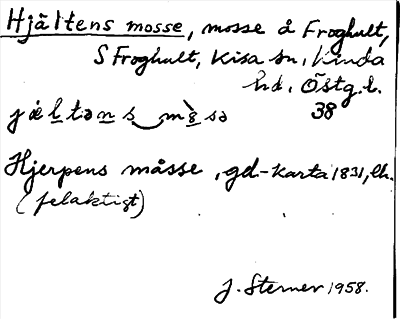 Hjältens mosse, mosse å Froghult,
S Froghult, Kisa sn, Kinda
hd, Östg.l.
jæltəns mòsə 38
Hjerpens måsse, gd-karta 1831, lh.
(felaktigt)
J. Sterner 1958.